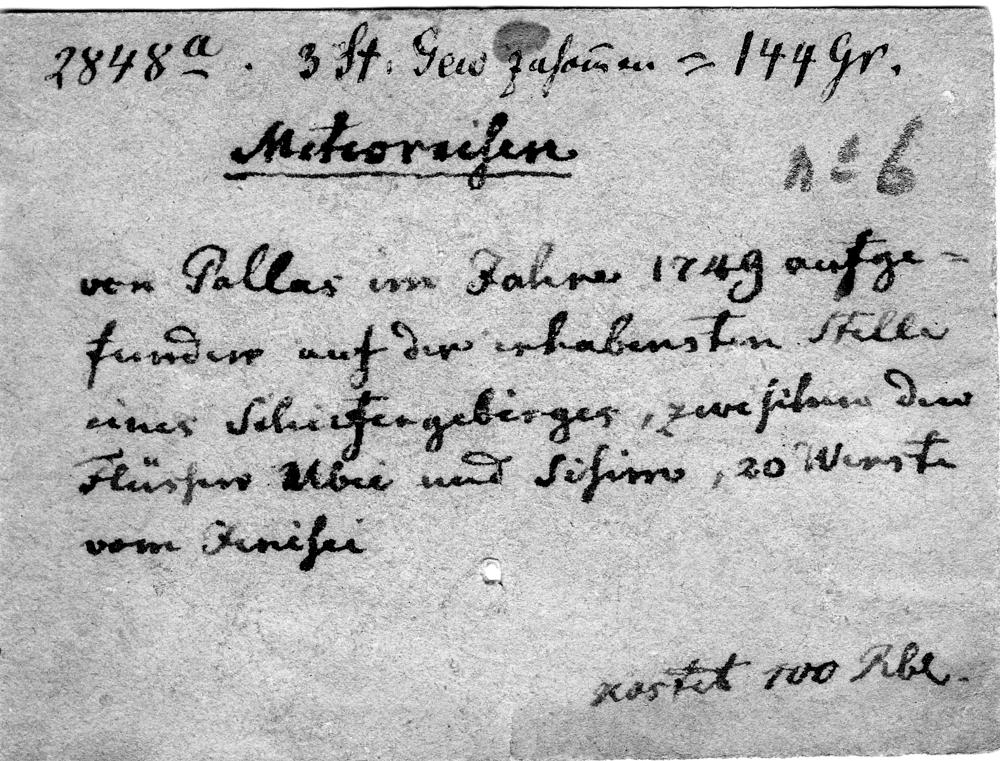 2848a. 3 St. Gew zusam̄en = 144 Gr.
Meteoreisen
no 6
von Pallas im Jahre 1749 aufge-
funden auf der erhabensten Stelle
eines Schiefergebirges, zwischen den
Flüssen Ubei und Sisim, 20 Werste
vom Jenisei
kostet 100 Rbl.